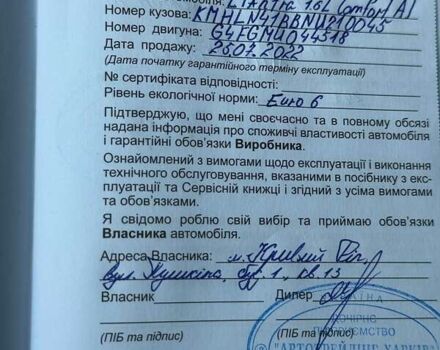 Elantra 1.6L Comfort AT
Номер кузова: KMHLN41BBNU210045
Номер двигуна: G4FGMU044518
Дата продажу: 26.07.2022
(Дата початку гарантійного терміну експлуатації)
№ сертифіката відповідності:
Рівень екологічної норми: Euro 6
Підтверджую, що мені своєчасно та в повному обсязі
надана інформація про споживчі властивості автомобіля
і гарантійні обов'язки Виробника.
Ознайомлений з вимогами щодо експлуатації і виконання
технічного обслуговування, вказаними в посібнику з екс-
плуатації та Сервісній книжці і згідний з усіма вимогами
та обов'язками.
Я свідомо роблю свій вибір та приймаю обов'язки
Власника автомобіля.
Адреса Власника: м. Кривий Ріг,
вул. Пушкіна, буд. 1, кв. 13
Власник Дилер
УКРАЇНА
ДОЧІРНЄ
ПІДПРИЄМСТВО
(ПІБ та підпис) (ПІБ та підпис)
"АВТОТРЕЙДІНГ-ХАРКІВ"